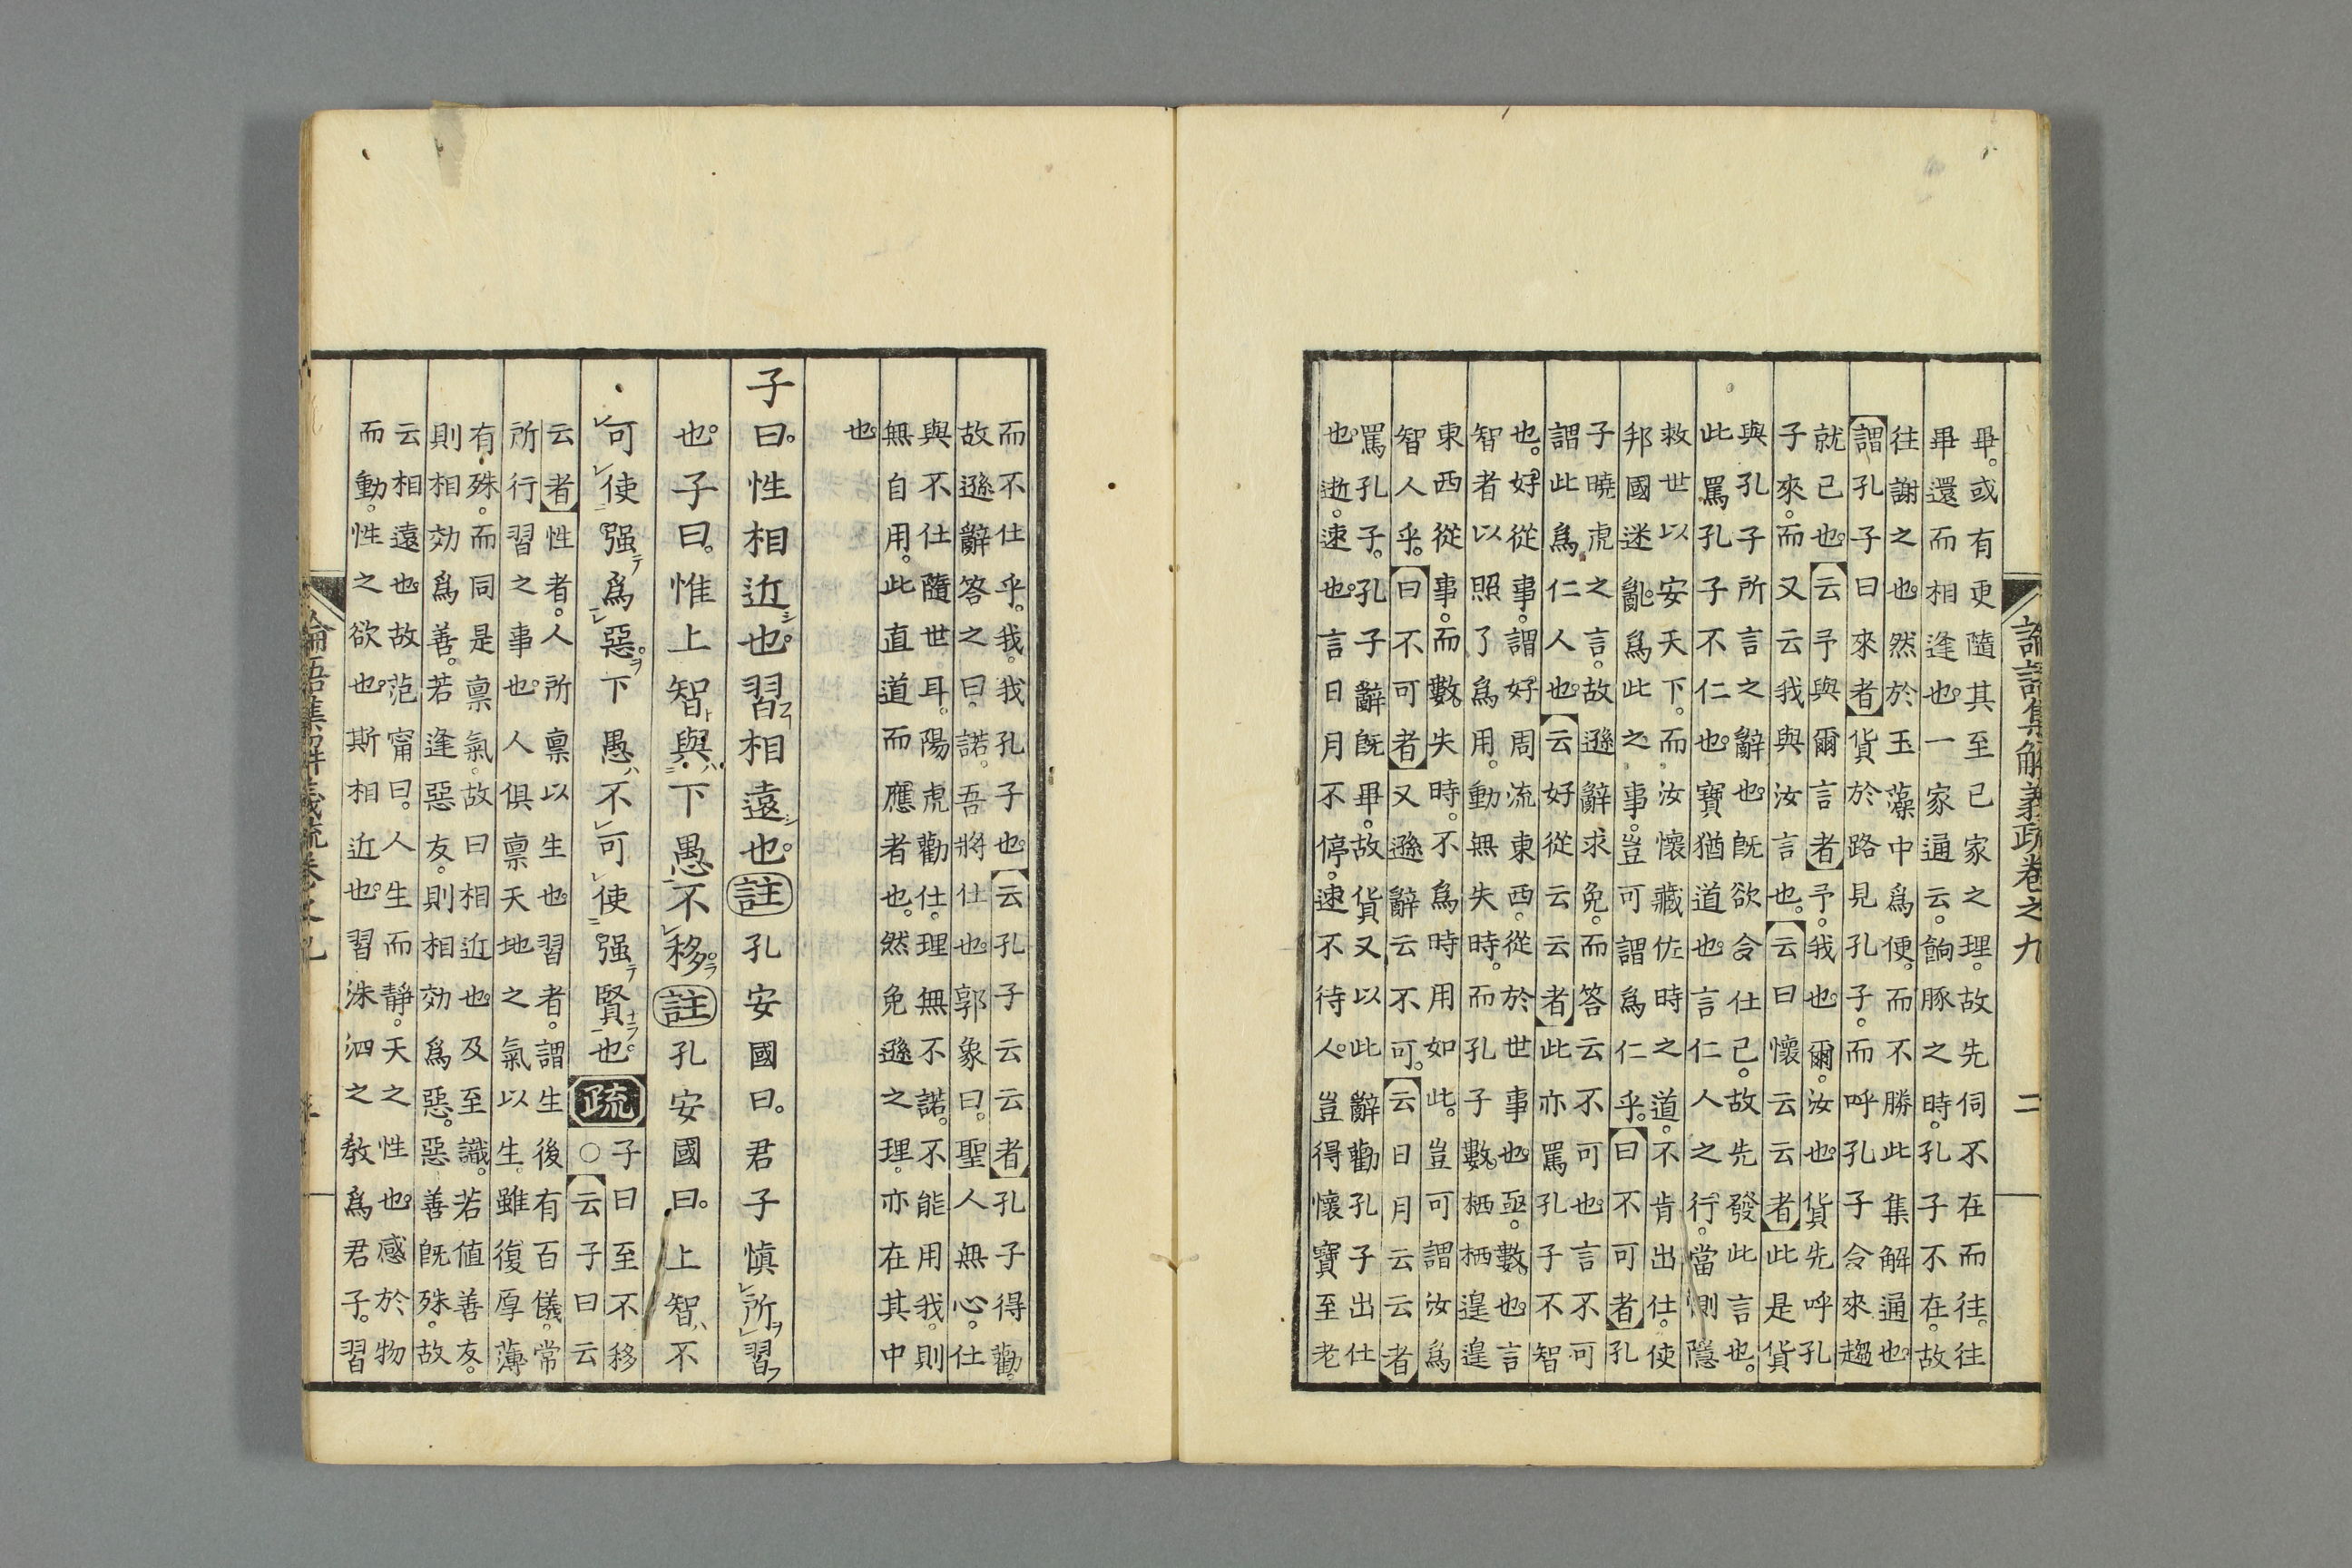 論語集解義疏卷之九 二
畢。或有更隨其至已家之理。故先伺不在而往。往
畢還而相逢也。一家通云。餉豚之時。孔子不在。故
往謝之也。然於玉藻中爲便。而不勝此集解通也。
謂孔子曰來者貨於路見孔子。而呼孔子令來趨
就己也。云予與爾言者予。我也。爾。汝也。貨先呼孔
子來。而又云我與汝言也。云曰懷云云者此是貨
與孔子所言之辭也。既欲令仕己。故先發此言也。
此罵孔子不仁也。寶猶道也。言仁人之行。當惻隱
救世以安天下。而汝懷藏佐時之道。不肯出仕。使
邦國迷亂。爲此之事。豈可謂爲仁乎。曰不可者孔
子曉虎之言。故遜辭求免。而答云不可也。言不可
謂此爲仁人也。云好從云云者此亦罵孔子不智
也。好從事。謂好周流東西。從於世事也。亟。數也。言
智者以照了爲用。動無失時。而孔子數栖栖遑遑
東西從事。而數失時。不爲時用如此。豈可謂汝爲
智人乎。曰不可者又遜辭云不可。云日月云云者
罵孔子。孔子辭既畢。故貨又以此辭勸孔子出仕
也。逝。速也。言日月不停。速不待人。豈得懷寶至老
而不仕乎。我。我孔子也。云孔子云云者孔子得勸。
故遜辭答之曰。諾。吾將仕也。郭象曰。聖人無心。仕
與不仕隨世耳。陽虎勸仕。理無不諾。不能用我。則
無自用。此直道而應者也。然免遜之理。亦在其中
也。
子曰。性相近シ也。習ヘ相遠シ也。註孔安國曰。君子愼レ所ヲレ習フ
也。子曰。惟上智ト與ハ二下愚一不レ移ラ。註孔安國曰。上智ハ不
レ可レ使二强テ爲一レ惡ヲ。下愚ハ不レ可レ使二强テ賢ナラ一也疏
子曰至不移
○云子曰云
云者性者。人所禀以生也。習者。謂生後有百儀。常
所行習之事也。人俱禀天地之氣以生。雖復厚薄
有殊。而同是禀氣。故曰相近也。及至識。若値善友。
則相効爲善。若逢惡友。則相効爲惡。惡善既殊。故
云相遠也。故范甯曰。人生而靜。天之性也。感於物
而動。性之欲也。斯相近也。習洙泗之教爲君子。習
論語集解義疏卷之九